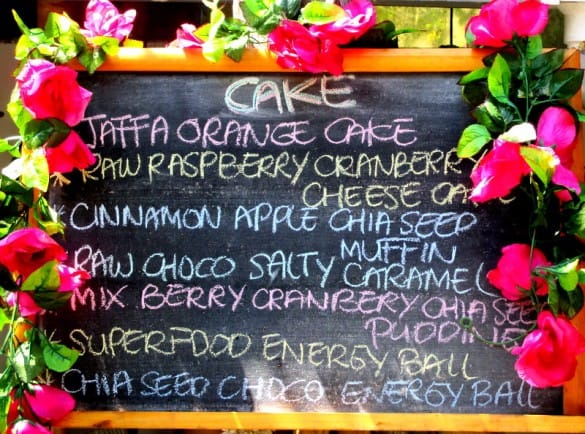 CAKE
JAFFA ORANGE CAKE
* RAW RASPBERRY CRANBERRY
CHEESE CAKE
* CINNAMON APPLE CHIA SEED
MUFFIN
RAW CHOCO SALTY CARAMEL
MIX BERRY CRANBERY CHIA SEED
PUDDING
* SUPERFOOD ENERGY BALL
* CHIA SEED CHOCO ENERGY BALL